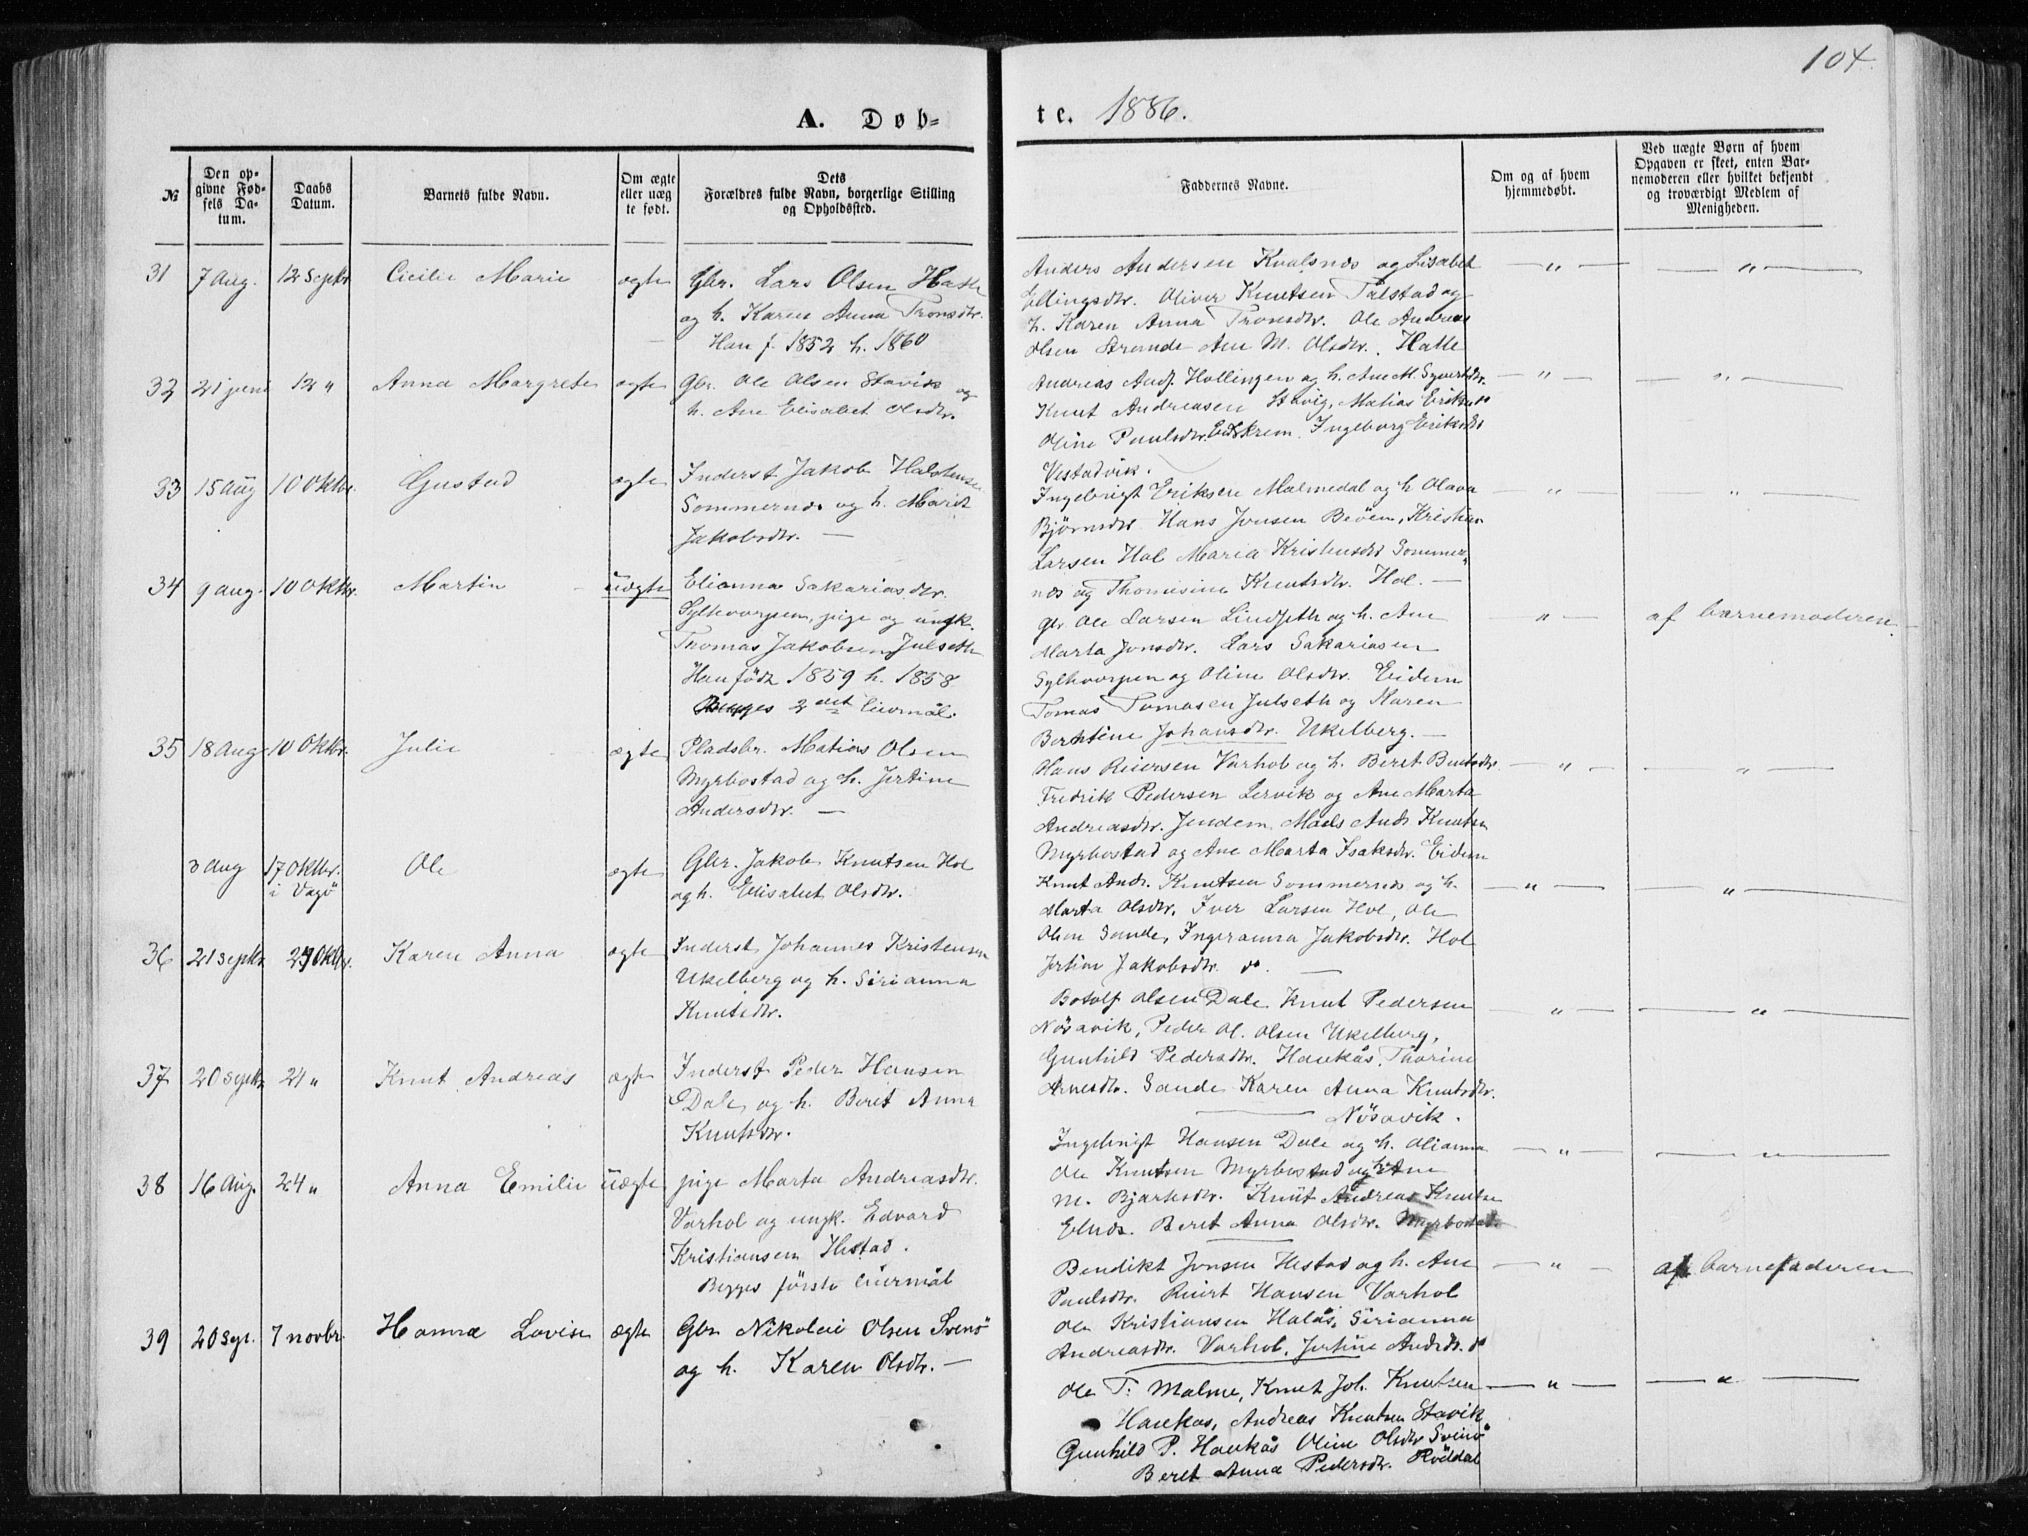 104.
A. Døb=
te. 1886.
№
Den op=
givne Fød=
sels Da=
tum.
Daabs
Datum.
Barnets fulde Navn.
Om ægte
eller uæg
te født.
Dets
Forældres fulde Navn, borgerlige Stilling
og Opholdssted.
Faddernes Navne.
Om og af hvem
hjemmedøbt.
Ved uægte Børn af hvem
Opgaven er skeet, enten Bar=
nemoderen eller hvilket bekjendt
og troværdigt Medlem af
Menigheden.
31 7 Aug. 12 Septr Cicilie Marie ægte
Gbr. Lars Olsen Hatle
og h. Karen Anna Tronsdtr.
Han f. 1852 h. 1860
Anders Andersen Kvalsnes og Lisabet
Ellingsdtr. Oliver Knutsen Talstad og
h. Karen Anna Tronsdtr. Ole Andreas
Olsen Strande Ane M. Olsdtr. Hatle
32 21 juni 12 " Anna Margrete ægte
Gbr. Ole Olsen Stavik og
h. Ane Elisabet Olsdtr.
Andreas Andr. Hollingen og h. Ane M. Syvertsdtr.
Knut Andreasen Stavig, Matias Eriksen
Oline Paulsdtr. Eidskrem, Ingeborg Eriksdtr
Vestadvik.
33 15 Aug 10 Oktbr. Gustad ægte
Inderst Jakob Halstensen
Sommernes og h. Marit
Jakobsdtr. —
Ingebrigt Eriksen Malmedal og h Olava
Bjørnsdtr Hans Jonsen Beöen, Kristian
Larsen Hol Maria Kristensdtr Sommer=
nes og Thomasine Knutsdtr. Hol. —
34 9 aug. 10 Oktbr. Martin uægte
Elianna Sakariasdtr.
Sylhvorpen, pige og ungk.
Thomas Jakobsen Julseth
Han född 1859 h. 1858
Begges 2det leiermål.
Gbr Ole Larsen Lindseth og h. Ane
Marta Jonsdtr. Lars Sakariasen
Sylhvorpen og Oline Olsdtr. Eidem
Tomas Tomasen Julseth og Karen
Berntine Johansdtr. Ukelberg. —
af barnemoderen.
35 18 Aug 10 Oktbr. Julie ægte
Pladsbr. Matias Olsen
Myrbostad og h. Jertine
Andersdtr. —
Hans Reiersen Varhol og h. Beret Bentsdtr.
Fredrik Pedersen Lervik og Ane Marta
Andreasdtr. Jendem Mads Andr. Knutsen
Myrbostad og Ane Marta Isaksdtr. Eidem
3 Aug 17 Oktbr.
i Vagö Ole ægte
Gbr. Jakob Knutsen Hol
og h. Elisabet Olsdtr.
Knut Andr. Knutsen Sommernes og h.
Marta Olsdtr. Iver Larsen Hol, Ole
Olsen Sande, Ingeranna Jakobsdtr. Hol
Jertine Jakobsdtr. do. —
36 21 septr 24 Oktbr. Karen Anna ægte
Inderst Johannes Kristensen
Ukelberg og h. Sirianna
Knutsdtr.
Botolf Olsen Dale Knut Pedersen
Nösavik, Peder Ol. Olsen Ukelberg,
Gunhild Pedersdtr. Haukås, Thorine
Arnesdtr. Sande Karen Anna Knutsdtr.
Nösavik.
37 20 septr 24 " Knut Andreas ægte
Inderst Peder Hansen
Dale og h. Berit Anna
Knutsdtr.
Ingebrigt Hansen Dale og h. Olianna
Ole Knutsen Myrbostad og h. Ane
M. Bjarksdtr. Knut Andreas Knutsen
Elnes. Beret Anna Olsdtr. Myrbostad.
38 16 Aug. 24 " Anna Emilie uægte
pige Marta Andreasdtr.
Varhol og ungk. Edvard
Kristiansen Hestad.
Begges første leiermål
Bendikt Jonsen Hestad og h. Ane
Paulsdtr. Reiert Hansen Varhol
Ole Kristiansen Halås, Sirianna
Andreasdtr. Varhol, Jertine Andrdtr. do
af barnefaderen
39 20 sept. 7 novbr. Hanna Lovise ægte
Gbr Nikolai Olsen Svenö
og h. Karen Olsdtr. —
Ole T. Malme, Knut Joh. Knutsen
Haukas, Andreas Knutsen Stavik
Gunhild P. Haukås Oline Olsdtr Svenö
Beret Anna Pedersdtr. Röddal